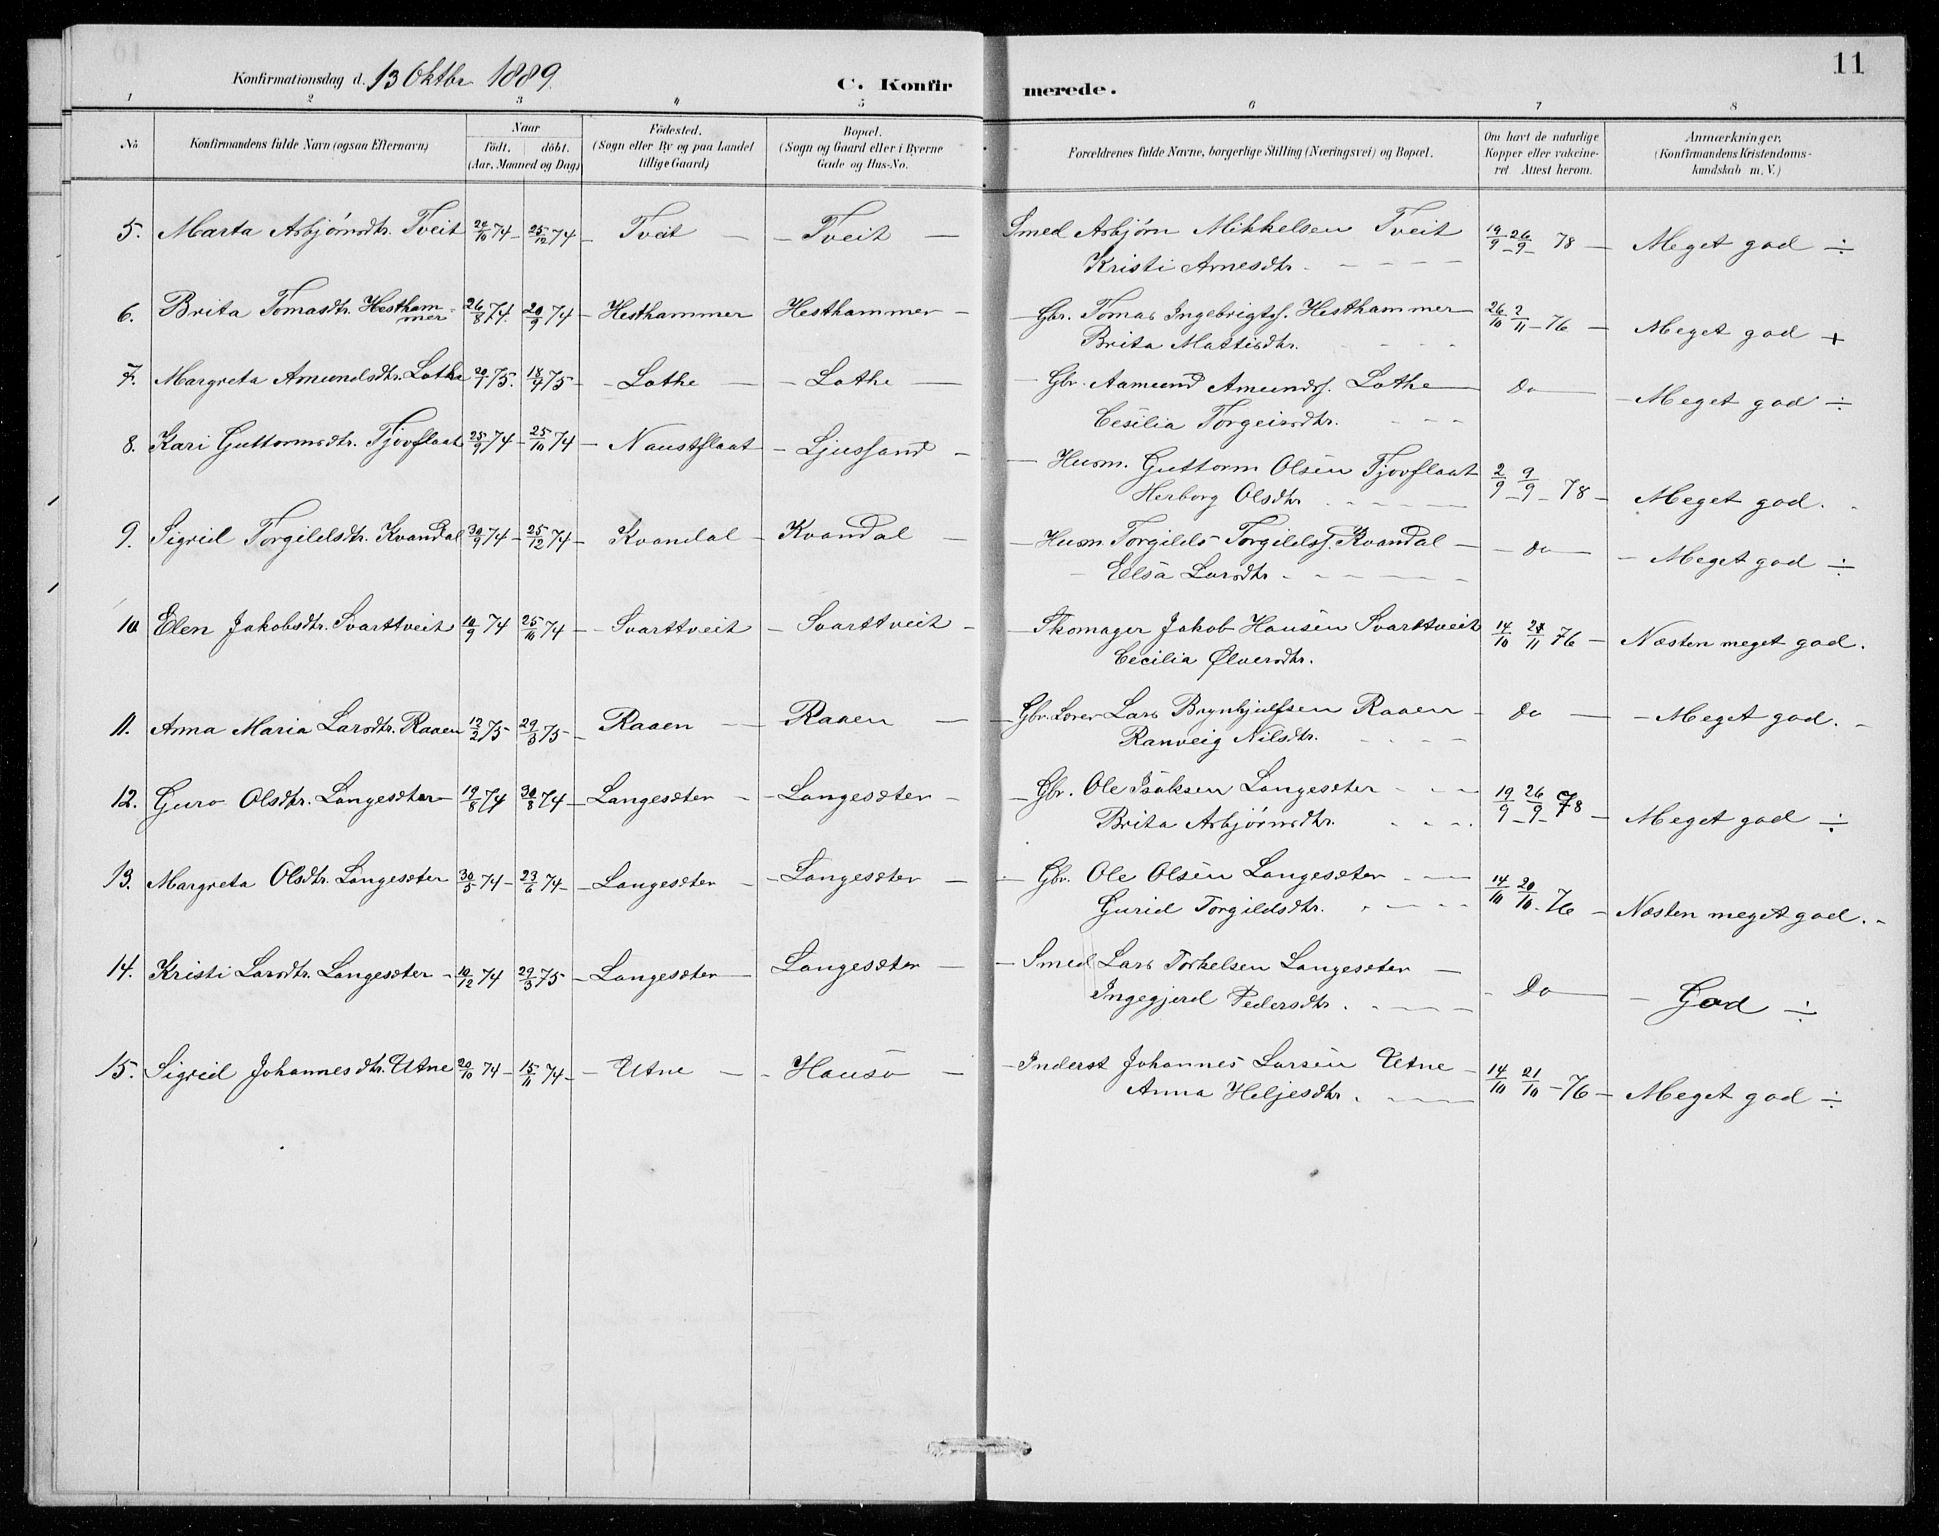 11
Konfirmationsdag d. 13 Oktbr 1889.
C. Konfirmerede.
1 2 3 4 5 6 7 8
No. Konfirmandens fulde Navn (ogsaa Efternavn) Naar födt. döbt. (Aar, Maaned og Dag) Födested. (Sogn eller By og paa Landet tillige Gaard) Bopæl. (Sogn og Gaard eller i Byerne Gade og Hus-No. Forældrenes fulde Navne, borgerlige Stilling (Næringsvei) og Bopæl. Om havt de naturlige Kopper eller vakcineret. Attest herom. Anmærkninger. (Konfirmandens Kristendomskundskab m. V.)
5. Marta Asbjörnsdtr. Tveit 20/10 74 - 25/12 74 - Tveit - - Tveit - Smed Asbjørn Mikkelsen Tveit 19/9 - 26/9 - 78 - Meget god ÷
Kristi Arnesdtr.
6. Brita Tomasdtr. Hesthammer 26/8 74. 20/9 74 - Hesthammer Hesthammer - - Gbr. Tomas Ingebrigts. Hesthammer 26/10 2/11 - 76 - Meget god +
Brita Mattisdtr.
7. Margreta Amundsdtr. Lothe 20/1 75. 18/4 75 - - Lothe - - Lothe - - Gbr. Aamund Amunds. Lothe Do - - Meget god ÷
Cesilia Torgeirsdtr.
8. Kari Guttormsdtr. Tjovflaat 25/9 74 - 25/10 74 - Naustflaat - Ljussand - - Husm. Guttorm Olsen Tjovflaat 2/9 - 9/9 - 78 - Meget god.
Herborg Olsdtr.
9. Sigrid Torgildsdtr. Kvandal 30/9 74 - 25/12 74 - Kvandal - Kvandal - - Husm. Torgilds Torgilds. Kvandal - - Do - - Meget god ÷
- Eelsa Larsdtr.
10 Elen Jakobsdtr. Svarttveit 10/9 74 25/10 74 - - Svarttveit - Svarttveit - - Skomager Jakob Hansen Svarttveit 14/10 21/11 76 - Næsten meget god.
Cecilia Ølversdtr.
11. Anna Maria Larsdtr. Raaen 12/2 75 29/3 75 - Raaen - - Raaen - - Gbr. Lærer Lars Brynhjulfsen Raaen - Do - - Meget god. -
Ranveig Nilsdtr.
12. Guro Olsdtr. Langesæter 19/8 74 30/8 74 - Langesæter - - Langesæter - - Gbr. Ole Isaksen Langesæter 19/9 - 26/9 - 78 - Meget god ÷
Brita Asbjørnsdtr.
13. Margreta Olsdtr. Langesæter 30/5 74 - 23/6 74 - - Langesæter - - Langesæter - - Gbr. Ole Olsen Langesæter 14/10 20/10 - 76 - Næsten meget god. -
Gurid Torgildsdtr.
14. Kristi Larsdtr. Langesæter - 10/12 74 29/3 75 - Langesæter - Langesæter - - Smed Lars Torkelsen Langesæter - - Do - - God ÷
Ingegjerd Pedersdtr.
15. Sigrid Johannesdtr. Utne 20/10 74 - 15/11 74 - - Utne - - Hauso - - Inderst Johannes Larsen Utne - 14/10 21/10 - 76 - Meget god ÷
Anna Heljesdtr.